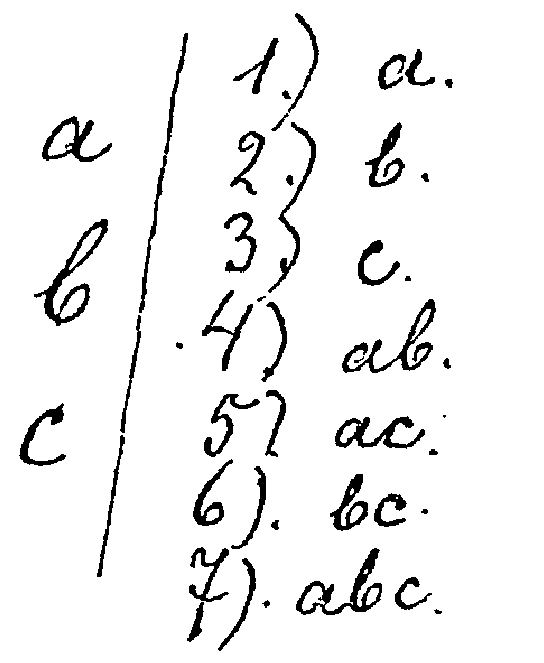 a
b
c
1.) a.
2.) b.
3.) c.
4) ab.
5) ac.
6). bc.
7). abc.